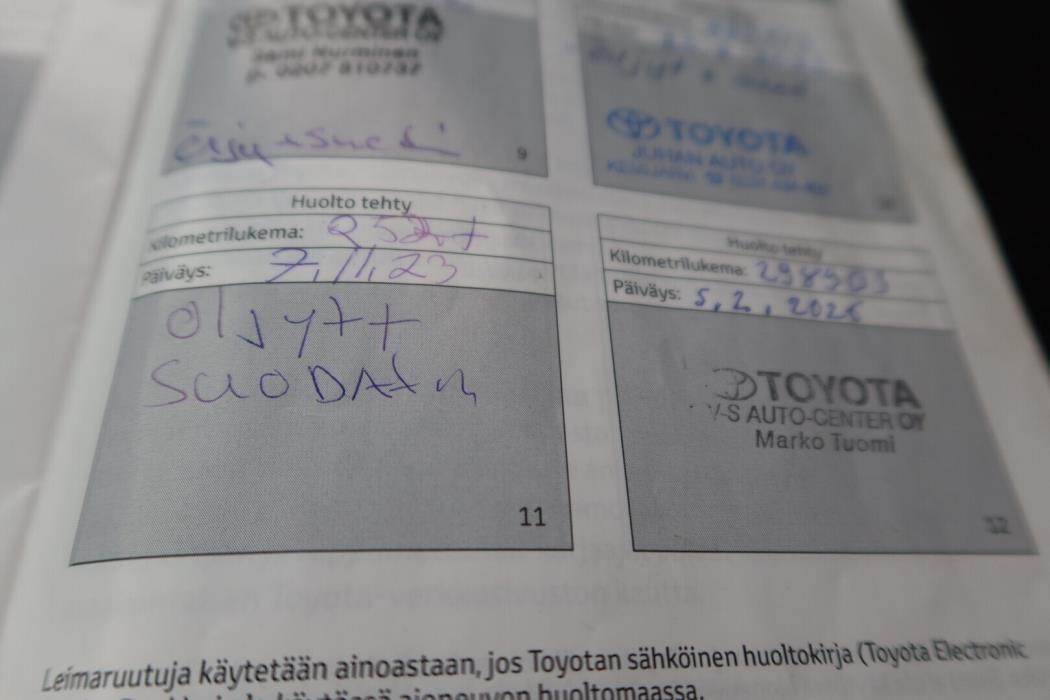 TOYOTA
V-S AUTO-CENTER OY
Sami Nurminen
p. 0207 810737
9
TOYOTA
JUHAN AUTO OY
Huolto tehty
Kilometrilukema:
Päiväys: 7.11.23
öljyt +
SUODATin
11
Huolto tehty
Kilometrilukema: 298903
Päiväys: 5.2.2025
TOYOTA
V-S AUTO-CENTER OY
Marko Tuomi
12
Leimaruutuja käytetään ainoastaan, jos Toyotan sähköinen huoltokirja (Toyota Electronic
käytössä ajoneuvon huoltomaassa.